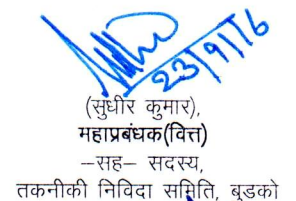 23/9/16
(सुधीर कुमार),
महाप्रबंधक(वित्त)
–सह– सदस्य,
तकनीकी निविदा समिति, बुडको